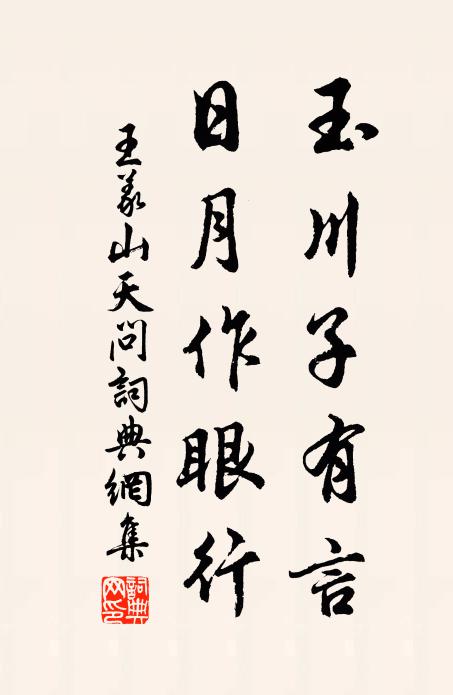 玉川子有言
日月作眼行
王义山天問詞典網集
詞典網印